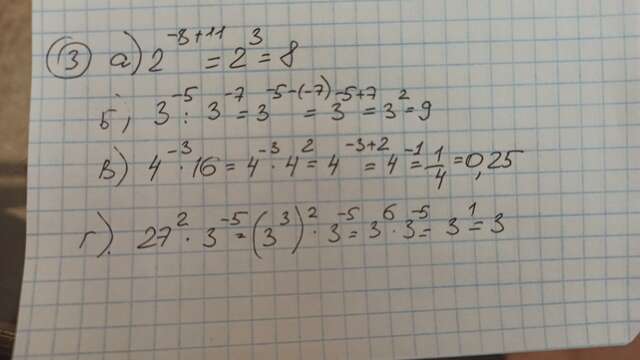 ③ а) 2⁻⁸⁺¹¹ = 2³ = 8
б) 3⁻⁵ : 3⁻⁷ = 3⁻⁵⁻⁽⁻⁷⁾ = 3⁻⁵⁺⁷ = 3² = 9
в) 4⁻³ · 16 = 4⁻³ · 4² = 4⁻³⁺² = 4⁻¹ = 1/4 = 0,25
г) 27² · 3⁻⁵ = (3³)² · 3⁻⁵ = 3⁶ · 3⁻⁵ = 3¹ = 3